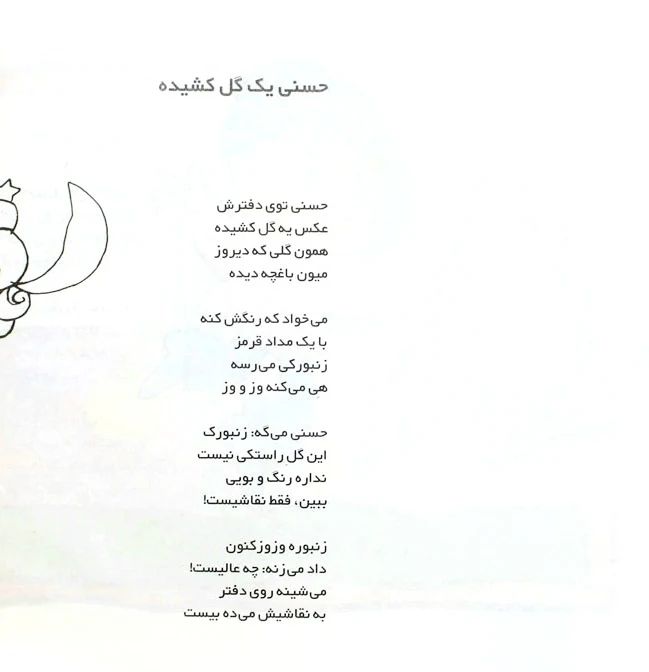 حسنی یک گل کشیده
حسنی توی دفترش
عکس یه گل کشیده
همون گلی که دیروز
میون باغچه دیده
می‌خواد که رنگش کنه
با یک مداد قرمز
زنبورکی می‌رسه
هی می‌کنه وز و وز
حسنی می‌گه: زنبورک
این گل راستکی نیست
نداره رنگ و بویی
ببین، فقط نقاشیست!
زنبوره وزوزکنون
داد می‌زنه: چه عالیست!
می‌شینه روی دفتر
به نقاشیش می‌ده بیست